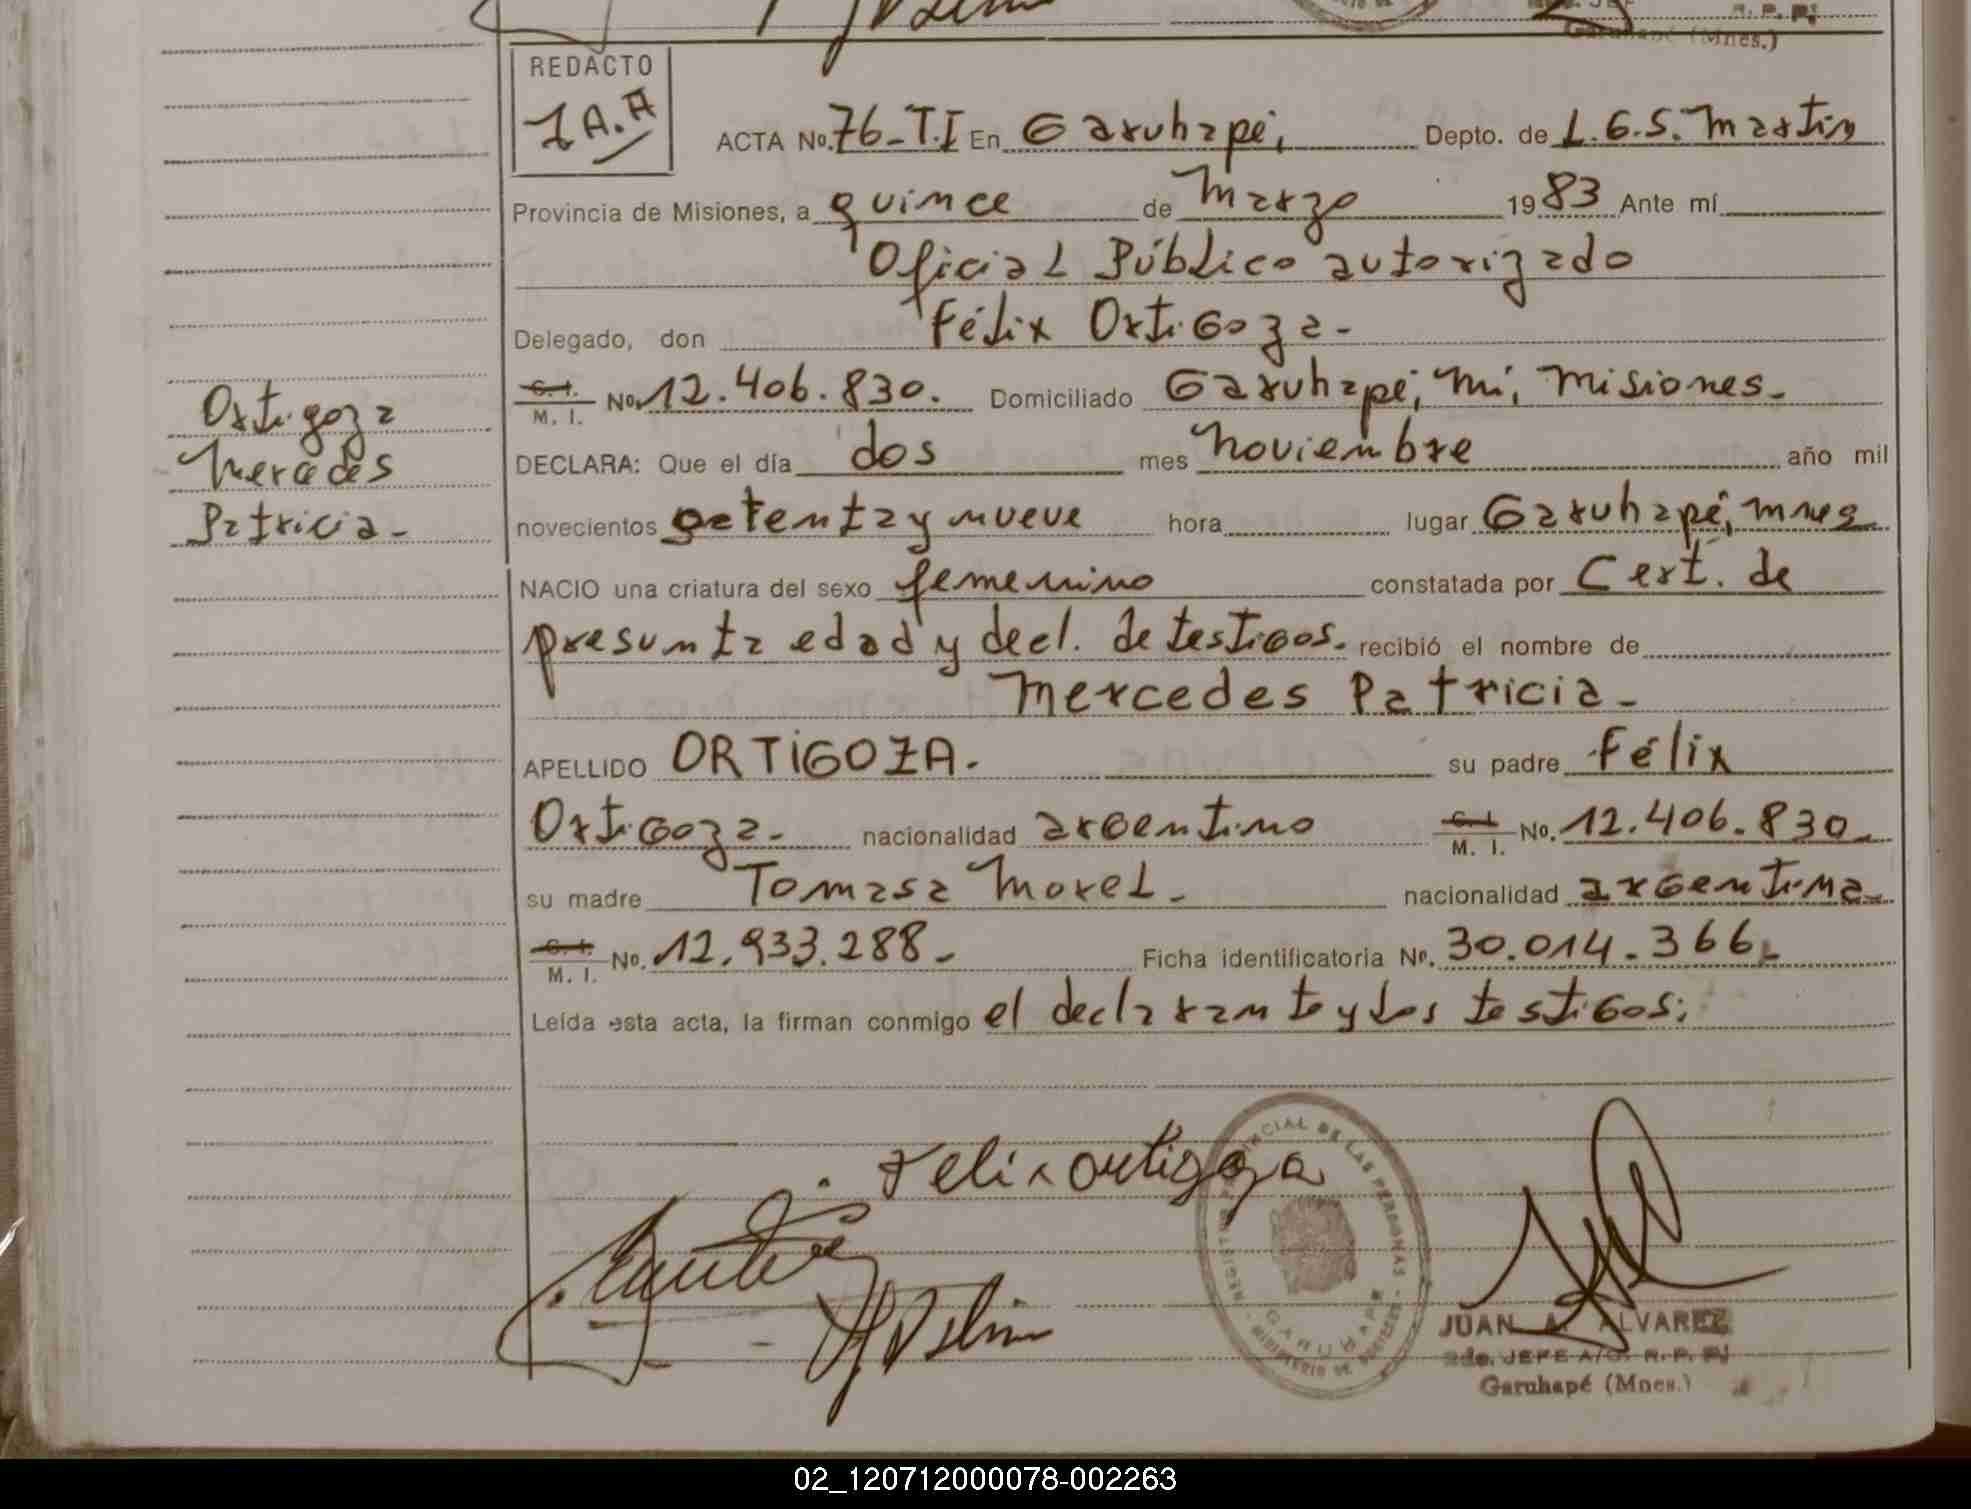 R. P. P.
Garuhapé (Mnes.)
REDACTO
J A. A
ACTA No. 76-T.I En Garuhapé, Depto. de L.G.S. Martin
Provincia de Misiones, a quince de Marzo 1983 Ante mí
Oficial Público autorizado
Delegado, don Félix Ortigoza-
C. I. M. I. No. 12.406.830. Domiciliado Garuhapé, Mí, Misiones.
Ortigoza
Mercedes
Patricia-
DECLARA: Que el día dos mes Noviembre año mil
novecientos setenta y nueve hora lugar Garuhapé, Mnes
NACIO una criatura del sexo femenino constatada por Cert. de
presunta edad y decl. de testigos. recibió el nombre de
Mercedes Patricia-
APELLIDO ORTIGOZA. su padre Félix
Ortigoza- nacionalidad argentino C. I. M. I. No. 12.406.830-
su madre Tomasa Morel- nacionalidad argentina-
C. I. M. I. No. 12.933.288- Ficha identificatoria No. 30.014.366
Leída esta acta, la firman conmigo el declarante y los testigos:
Felix ortigoza
REGISTRO PROVINCIAL DE LAS PERSONAS
GARUHAPE
MINISTERIO DE
JUAN A. ALVAREZ
2do. JEFE A/C. R. P. P.
Garuhapé (Mnes.)
02_120712000078-002263